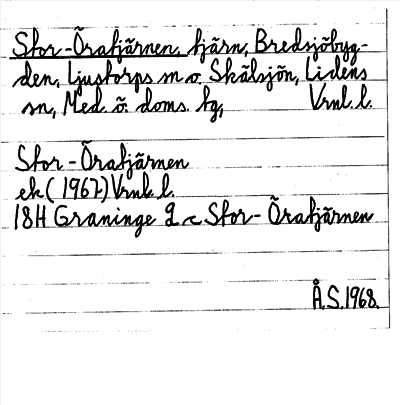 Stor-Öratjärnen, tjärn, Bredsjöbyg-
den, Ljustorps sn o. Skälsjön, Lidens
sn, Med. ö. doms. tg, Vrnl. l.
Stor-Öratjärnen
ek (1967) Vrnl. l.
18H Graninge 9 c Stor-Öratjärnen
Å.S. 1968.